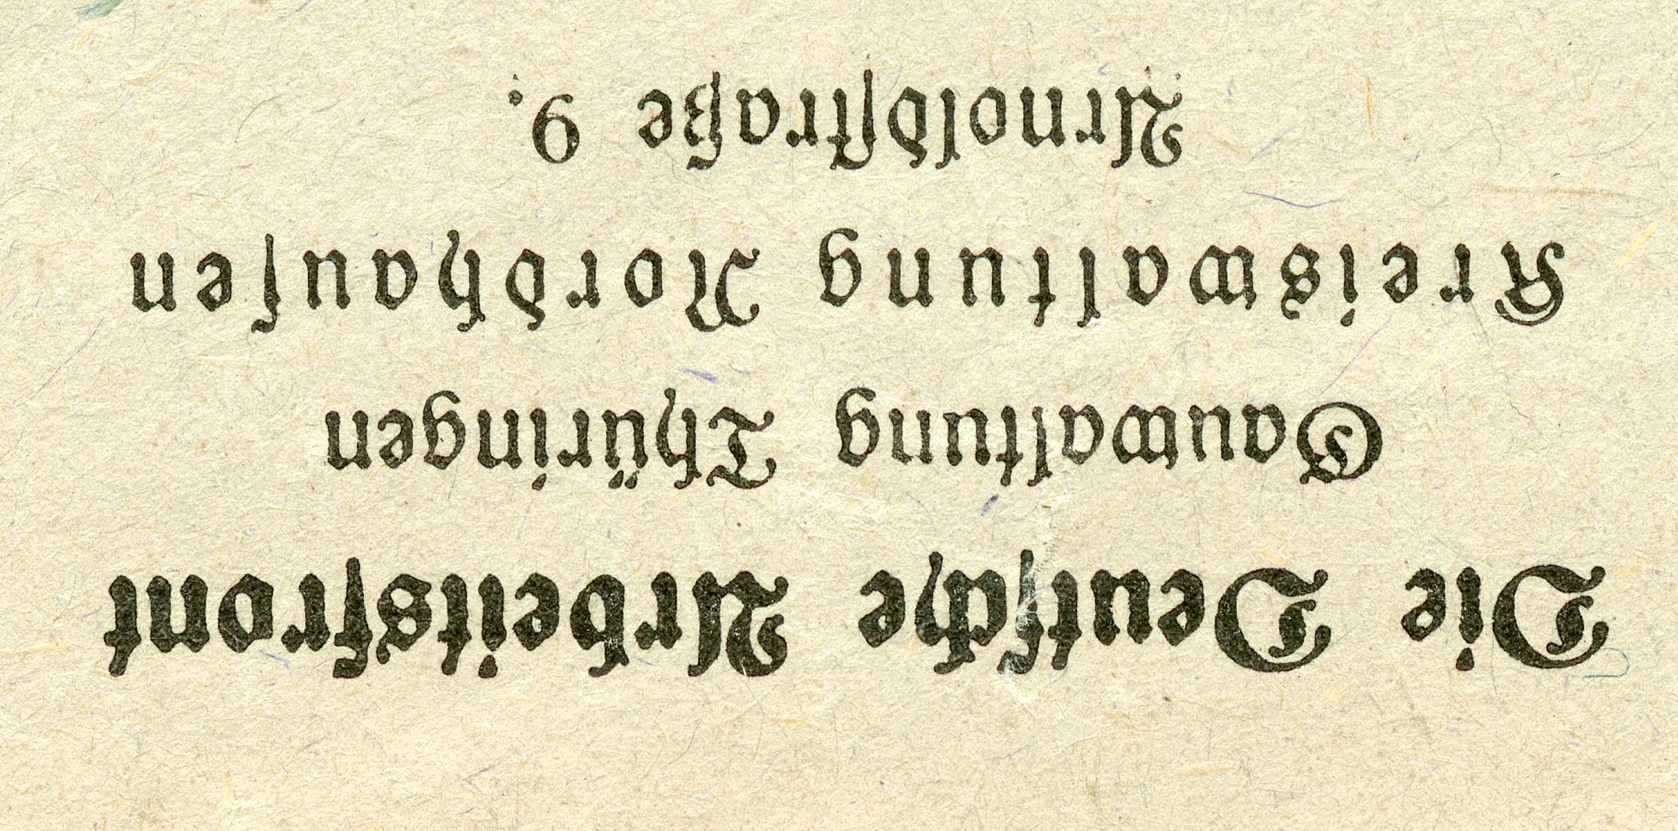 Die Deutsche Arbeitsfront
Gauwaltung Thüringen
Kreiswaltung Nordhausen
Arnoldstraße 6.